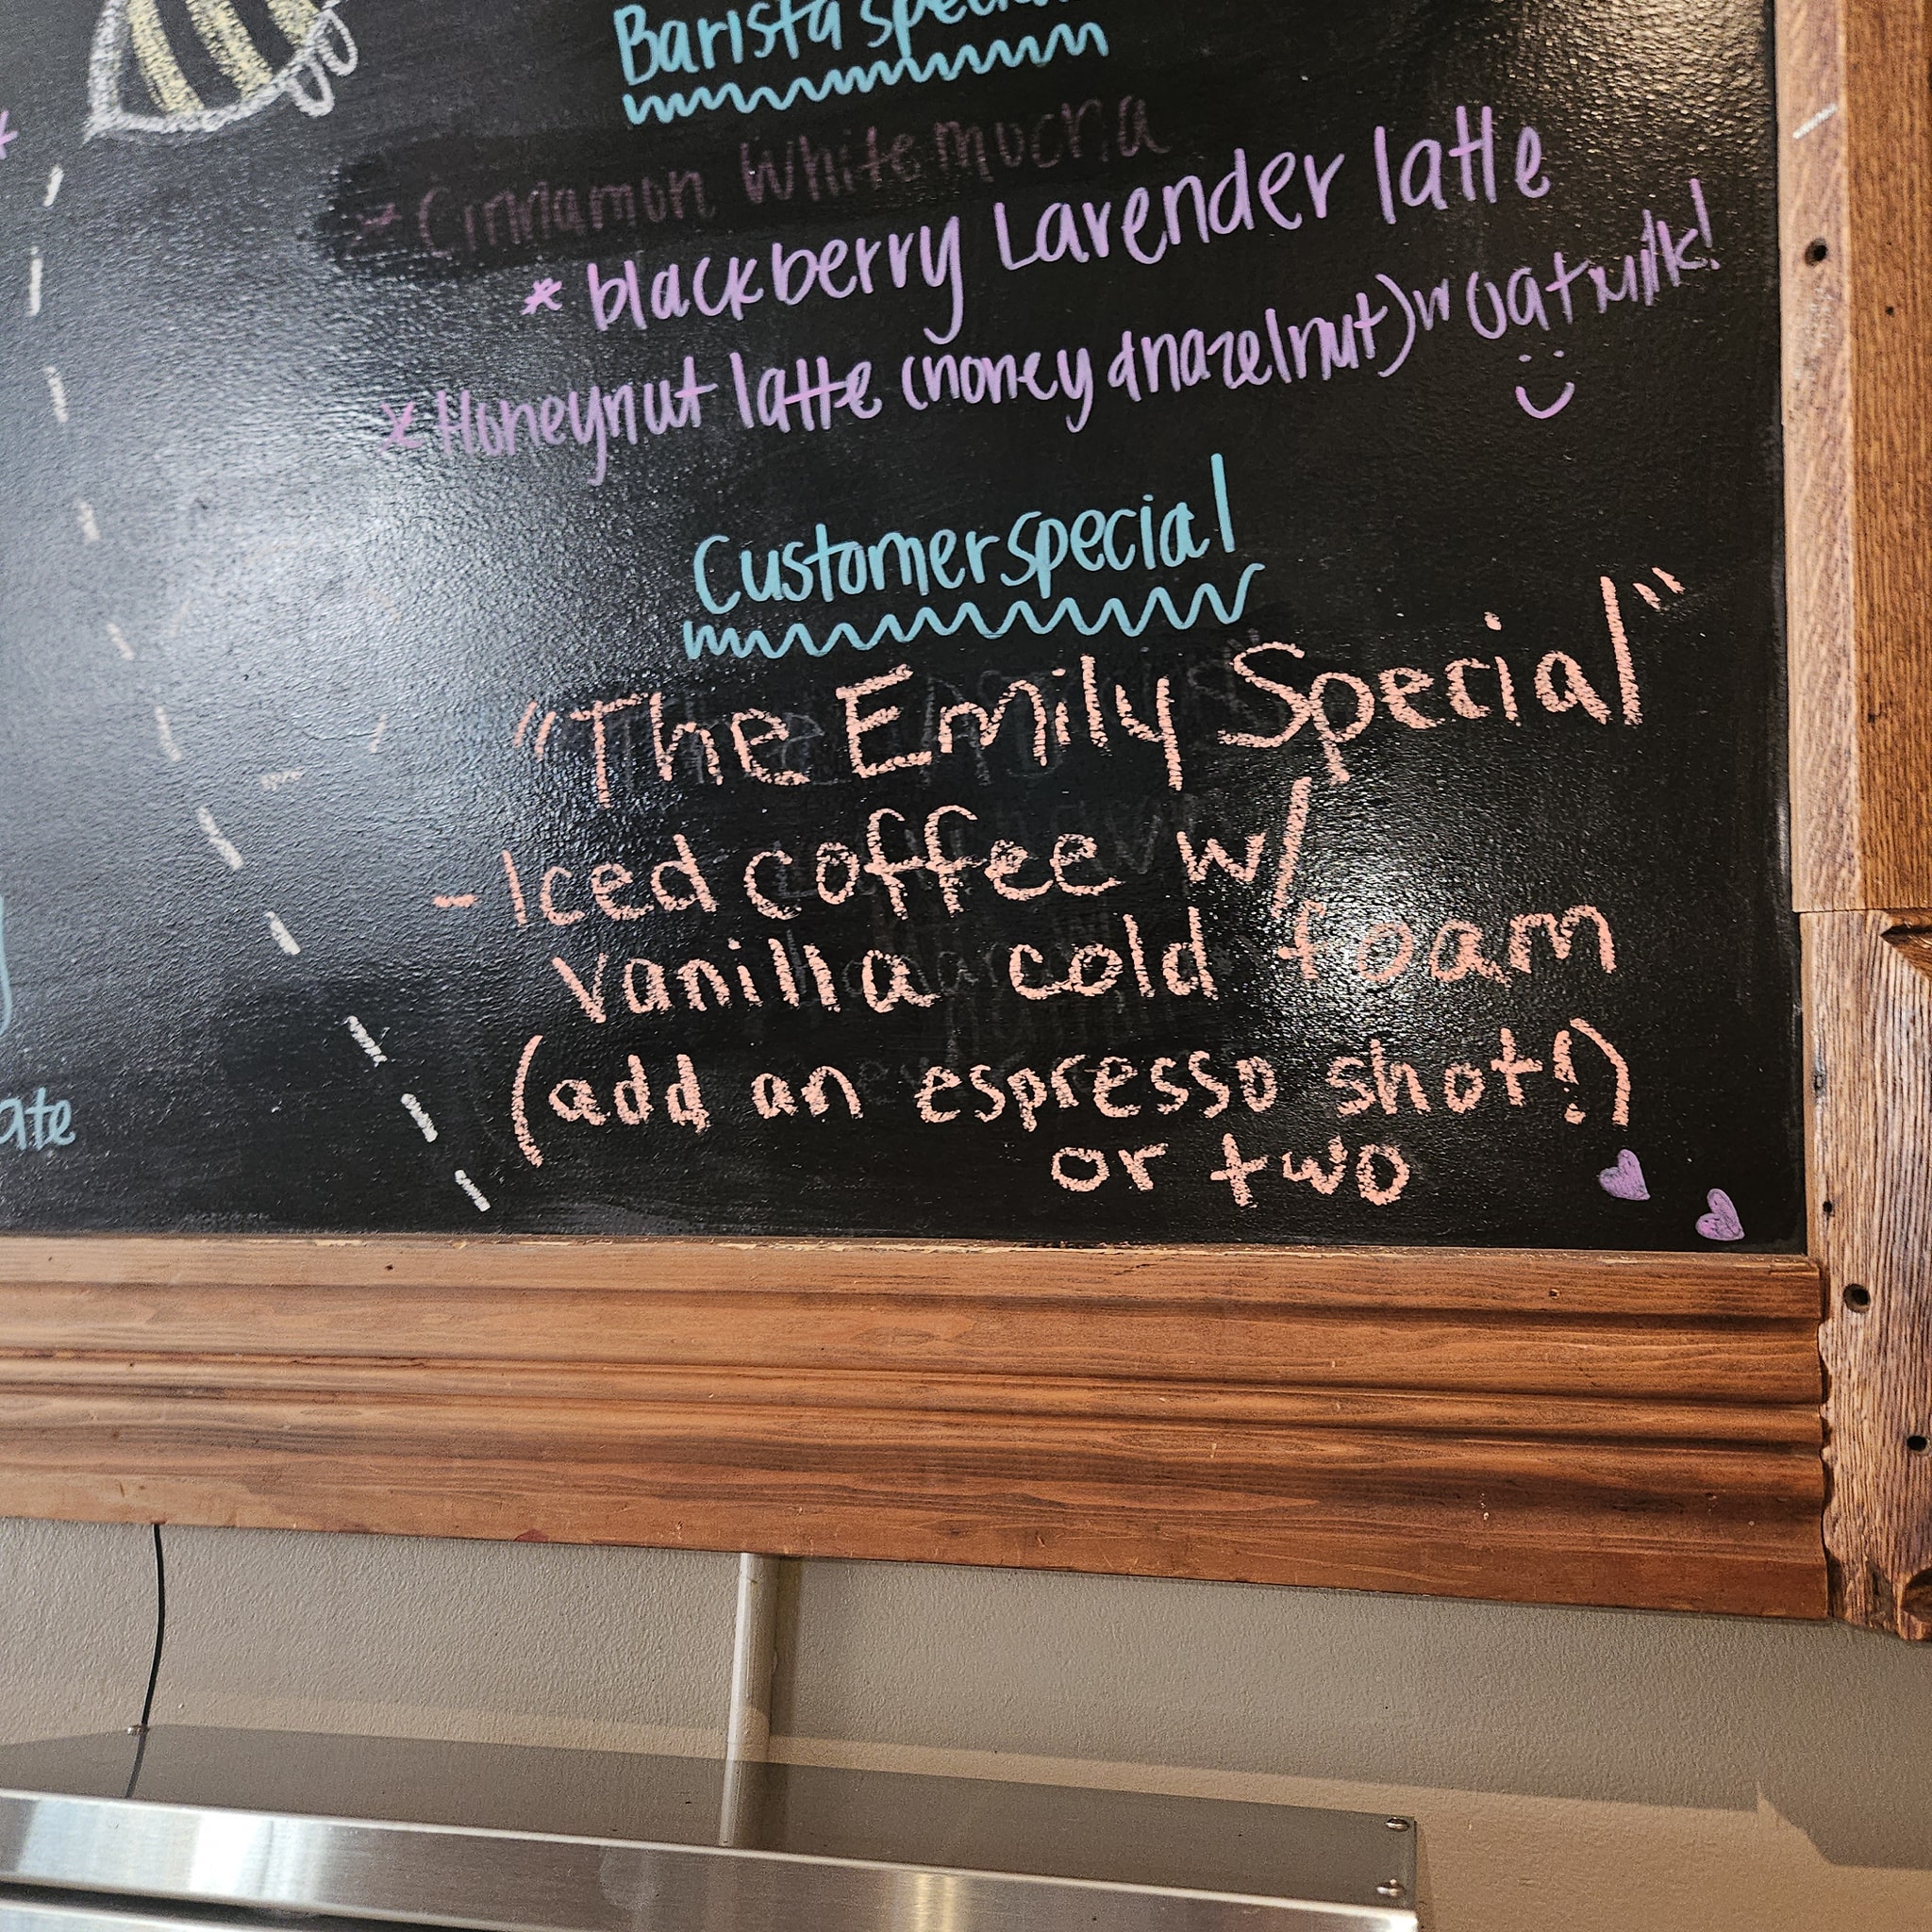 Barista special
* Cinnamon white mocha
* blackberry Lavender latte
* Honeynut latte (honey & hazelnut) w oatmilk!
Customer special
"The Emily Special"
- Iced coffee w/
vanilla cold foam
(add an espresso shot!)
or two
ate